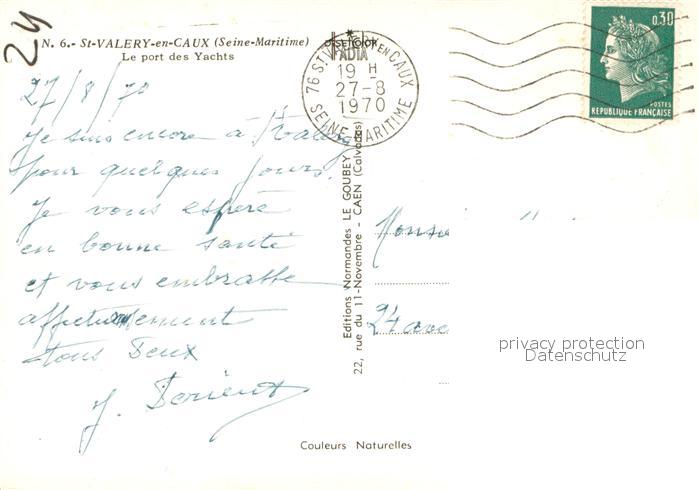 24
N. 6.- St-VALERY-en-CAUX (Seine-Maritime)
Le port des Yachts
27/8/70
Je suis encore à St Valery
pour quelques jours.
Je vous espère
en bonne santé
et vous embrasse
affectueusement
tous Deux
76 ST VALERY EN CAUX
19 H
27-8
1970
SEINE MARITIME
0,30
POSTES
REPUBLIQUE FRANÇAISE
Editions Normandes LE GOUBEY
22, rue du 11-Novembre - CAEN (Calvados)
24 ave
privacy protection
Datenschutz
Couleurs Naturelles